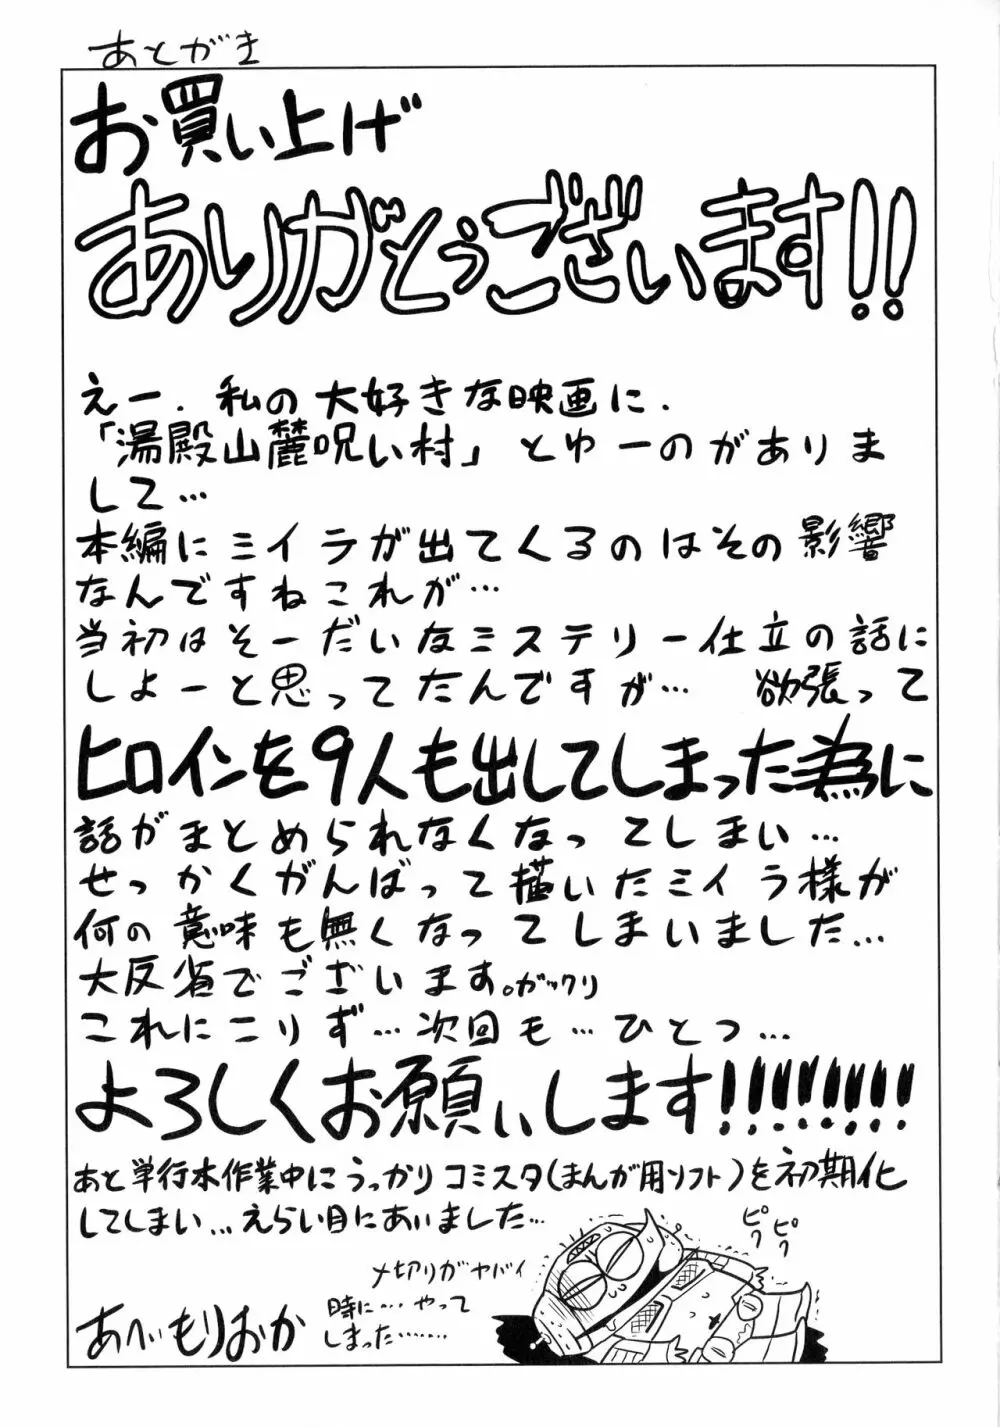 あとがき
お買い上げ
ありがとうございます!!
えー．私の大好きな映画に．
「湯殿山麓呪い村」とゆーのがありま
して…
本編にミイラが出てくるのはその影響
なんですねこれが…
当初はそーだいなミステリー仕立の話に
しよーと思ってたんですが… 欲張って
ヒロインを9人も出してしまった為に
話がまとめられなくなってしまい…
せっかくがんばって描いたミイラ様が
何の意味も無くなってしまいました…
大反省でございます。ガックリ
これにこりず…次回も…ひとつ…
よろしくお願いします!!!!!!!!
あと単行本作業中にうっかりコミスタ(まんが用ソフト)を初期化
してしまい…えらい目にあいました…
ピク
ピク
〆切りがヤバイ
時に…やって
しまった……
あへいもりおか